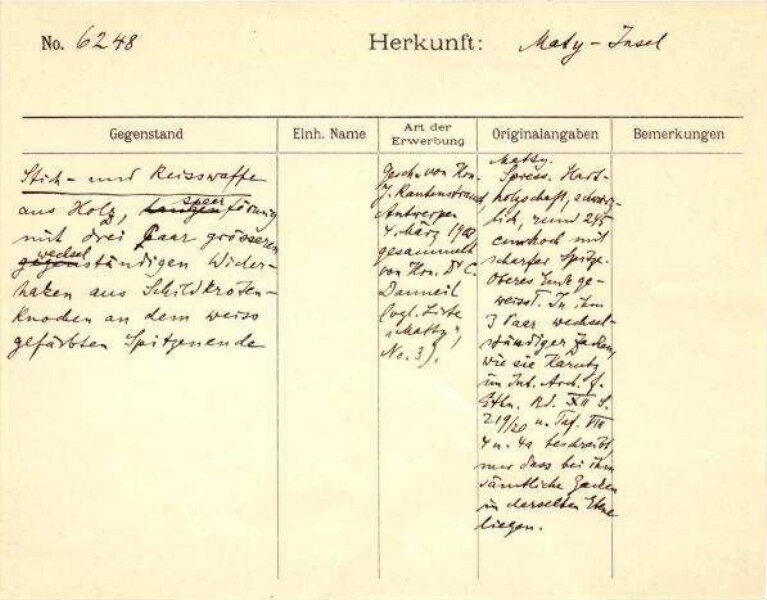 No. 6248
Herkunft: Maty-Insel
Gegenstand
Einh. Name
Art der Erwerbung
Originalangaben
Bemerkungen
Stich- und Reisswaffe
aus Holz, lanzen speerförmig
mit drei Paar grösseren
gegen wechselständigen Wider-
haken aus Schildkröten-
knochen an dem weiss
gefärbten Spitzenende
Gesch. von Hrn.
J. Rautenstrauch,
Antwerpen
4. März 190
gesammelt
von Hrn. Dr C.
Danneil
(vgl. Liste
"Matty",
No. 3).
Matty.
Speer. Hart-
holzschaft, schwärz-
lich, rund 245
cm hoch mit
scharfer Spitze.
Oberes Ende ge-
weisst. In ihm
3 Paar wechsel-
ständiger Zacken,
wie sie Karutz
im Int. Arch. f.
Ethn. Bd. XII S.
219/20 u. Taf. VIII
4 u. 4a beschreibt,
nur dass bei ihm
sämtliche Zacken
in derselben Ebne
liegen.